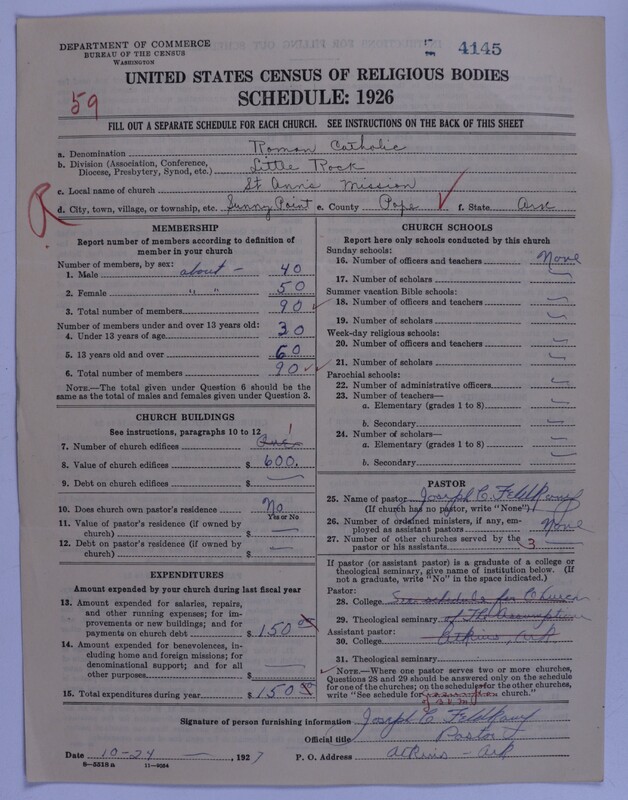 DEPARTMENT OF COMMERCE
BUREAU OF THE CENSUS
WASHINGTON
4145
UNITED STATES CENSUS OF RELIGIOUS BODIES
SCHEDULE: 1926
59
FILL OUT A SEPARATE SCHEDULE FOR EACH CHURCH. SEE INSTRUCTIONS ON THE BACK OF THIS SHEET
a. Denomination Roman Catholic
b. Division (Association, Conference, Diocese, Presbytery, Synod, etc.) Little Rock
c. Local name of church St Anns Mission
d. City, town, village, or township, etc. Sunny Point e. County Pope f. State Ark
R
MEMBERSHIP
Report number of members according to definition of
member in your church
Number of members, by sex:
1. Male about - 40
2. Female " " 50
3. Total number of members 90
Number of members under and over 13 years old:
4. Under 13 years of age 30
5. 13 years old and over 60
6. Total number of members 90
NOTE.—The total given under Question 6 should be
same as the total of males and females given under Question 3.
CHURCH BUILDINGS
See instructions, paragraphs 10 to 12
7. Number of church edifices One 1
8. Value of church edifices $ 600.
9. Debt on church edifices $
10. Does church own pastor's residence? No
Yes or No
11. Value of pastor's residence (if owned by
church) $
12. Debt on pastor's residence (if owned by
church) $
EXPENDITURES
Amount expended by your church during last fiscal year
13. Amount expended for salaries, repairs,
and other running expenses; for im-
provements or new buildings; and for
payments on church debt $ 150 00
14. Amount expended for benevolences, in-
cluding home and foreign missions; for
denominational support; and for all
other purposes $
15. Total expenditures during year $ 150 00
CHURCH SCHOOLS
Report here only schools conducted by this church
Sunday schools:
16. Number of officers and teachers None
17. Number of scholars
Summer vacation Bible schools:
18. Number of officers and teachers
19. Number of scholars
Week-day religious schools:
20. Number of officers and teachers
21. Number of scholars
Parochial schools:
22. Number of administrative officers
23. Number of teachers—
a. Elementary (grades 1 to 8)
b. Secondary
24. Number of scholars—
a. Elementary (grades 1 to 8)
b. Secondary
PASTOR
25. Name of pastor Joseph C. Feldkamp
(If church has no pastor, write "None")
26. Number of ordained ministers, if any, em-
ployed as assistant pastors None
27. Number of other churches served by the
pastor or his assistants 3
If pastor (or assistant pastor) is a graduate of a college or
theological seminary, give name of institution below. (If
not a graduate, write "No" in the space indicated.)
Pastor:
28. College See schedule for Church
29. Theological seminary of The Assumption
Assistant pastor:
30. College Atkins, Ark
31. Theological seminary
NOTE.—Where one pastor serves two or more churches,
Questions 28 and 29 should be answered only on the schedule
for one of the churches; on the schedules for the other churches,
write "See schedule for church."
Signature of person furnishing information Joseph C Feldkamp
Official title Pastor
Date 10-24 , 1927 P. O. Address Atkins - Ark
8-5318a 11-9054